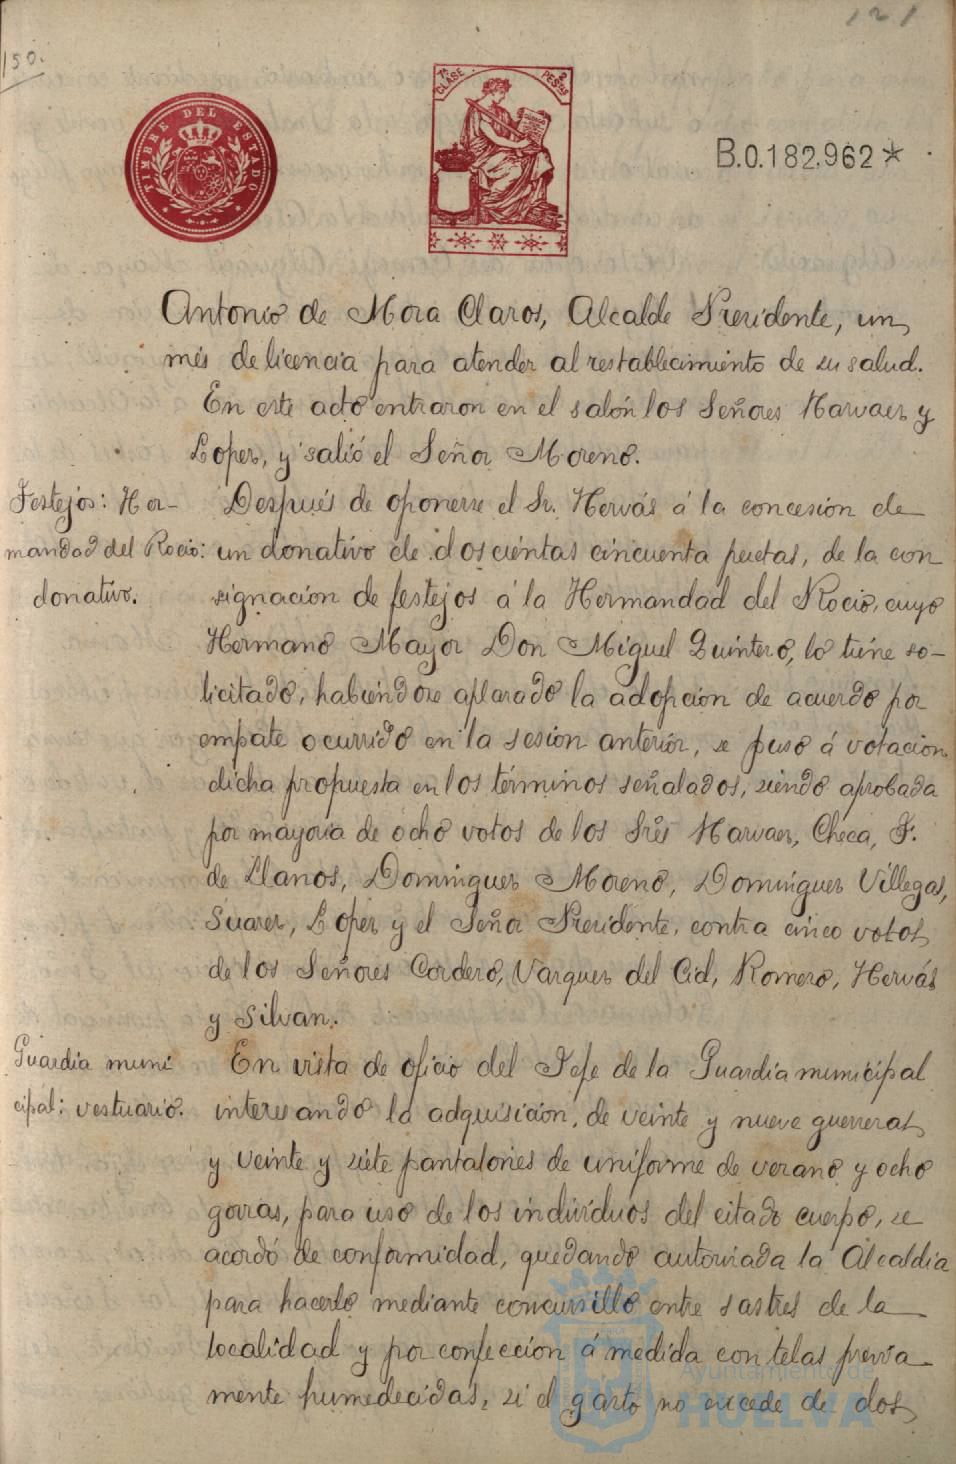 121
150.
TIMBRE DEL ESTADO
7ª CLASE 2 PESETAS
B.0.182.962*
Antonio de Mora Claros, Alcalde Presidente, un
més de licencia para atender al restablecimiento de su salud.
En este acto entraron en el salón los Señores Narvaez y
Lopez, y salió el Señor Moreno.
Festejos: Her-
mandad del Rocio:
donativo.
Después de oponerse el Sr. Hervás á la concesión de
un donativo de doscientas cincuenta pesetas, de la con
signacion de festejos á la Hermandad del Rocio, cuyo
Hermano Mayor Don Miguel Quintero, lo tiene so-
licitado, habiéndose aplazado la adopcion de acuerdo por
empate ocurrido en la sesion anterior, se puso á votacion
dicha propuesta en los términos señalados, siendo aprobada
por mayoria de ocho votos de los Sres Narvaez, Checa, F.
de Llanos, Dominguez Moreno, Dominguez Villegas,
Suarez, Lopez y el Señor Presidente, contra cinco votos
de los Señores Cordero, Vazquez del Cid, Romero, Hervás
y Silvan.
Guardia muni
cipal: vestuario.
En vista de oficio del Jefe de la Guardia municipal
interesando la adquisicion, de veinte y nueve guerreras
y veinte y siete pantalones de uniforme de verano y ocho
gorras, para uso de los individuos del citado cuerpo, se
acordó de conformidad, quedando autorizada la Alcaldia
para hacerlo mediante concursillo entre sastres de la
localidad y por confección á medida con telas previa
mente humedecidas, si el gasto no excede de dos
Ayuntamiento de
HUELVA